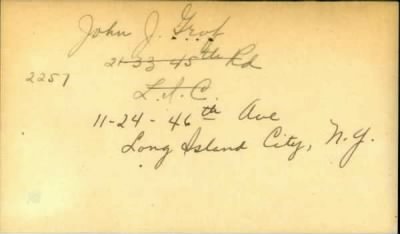 John J. Grof
21-33 45th Rd
2257
L.I.C.
11-24-46th Ave
Long Island City, N.Y.